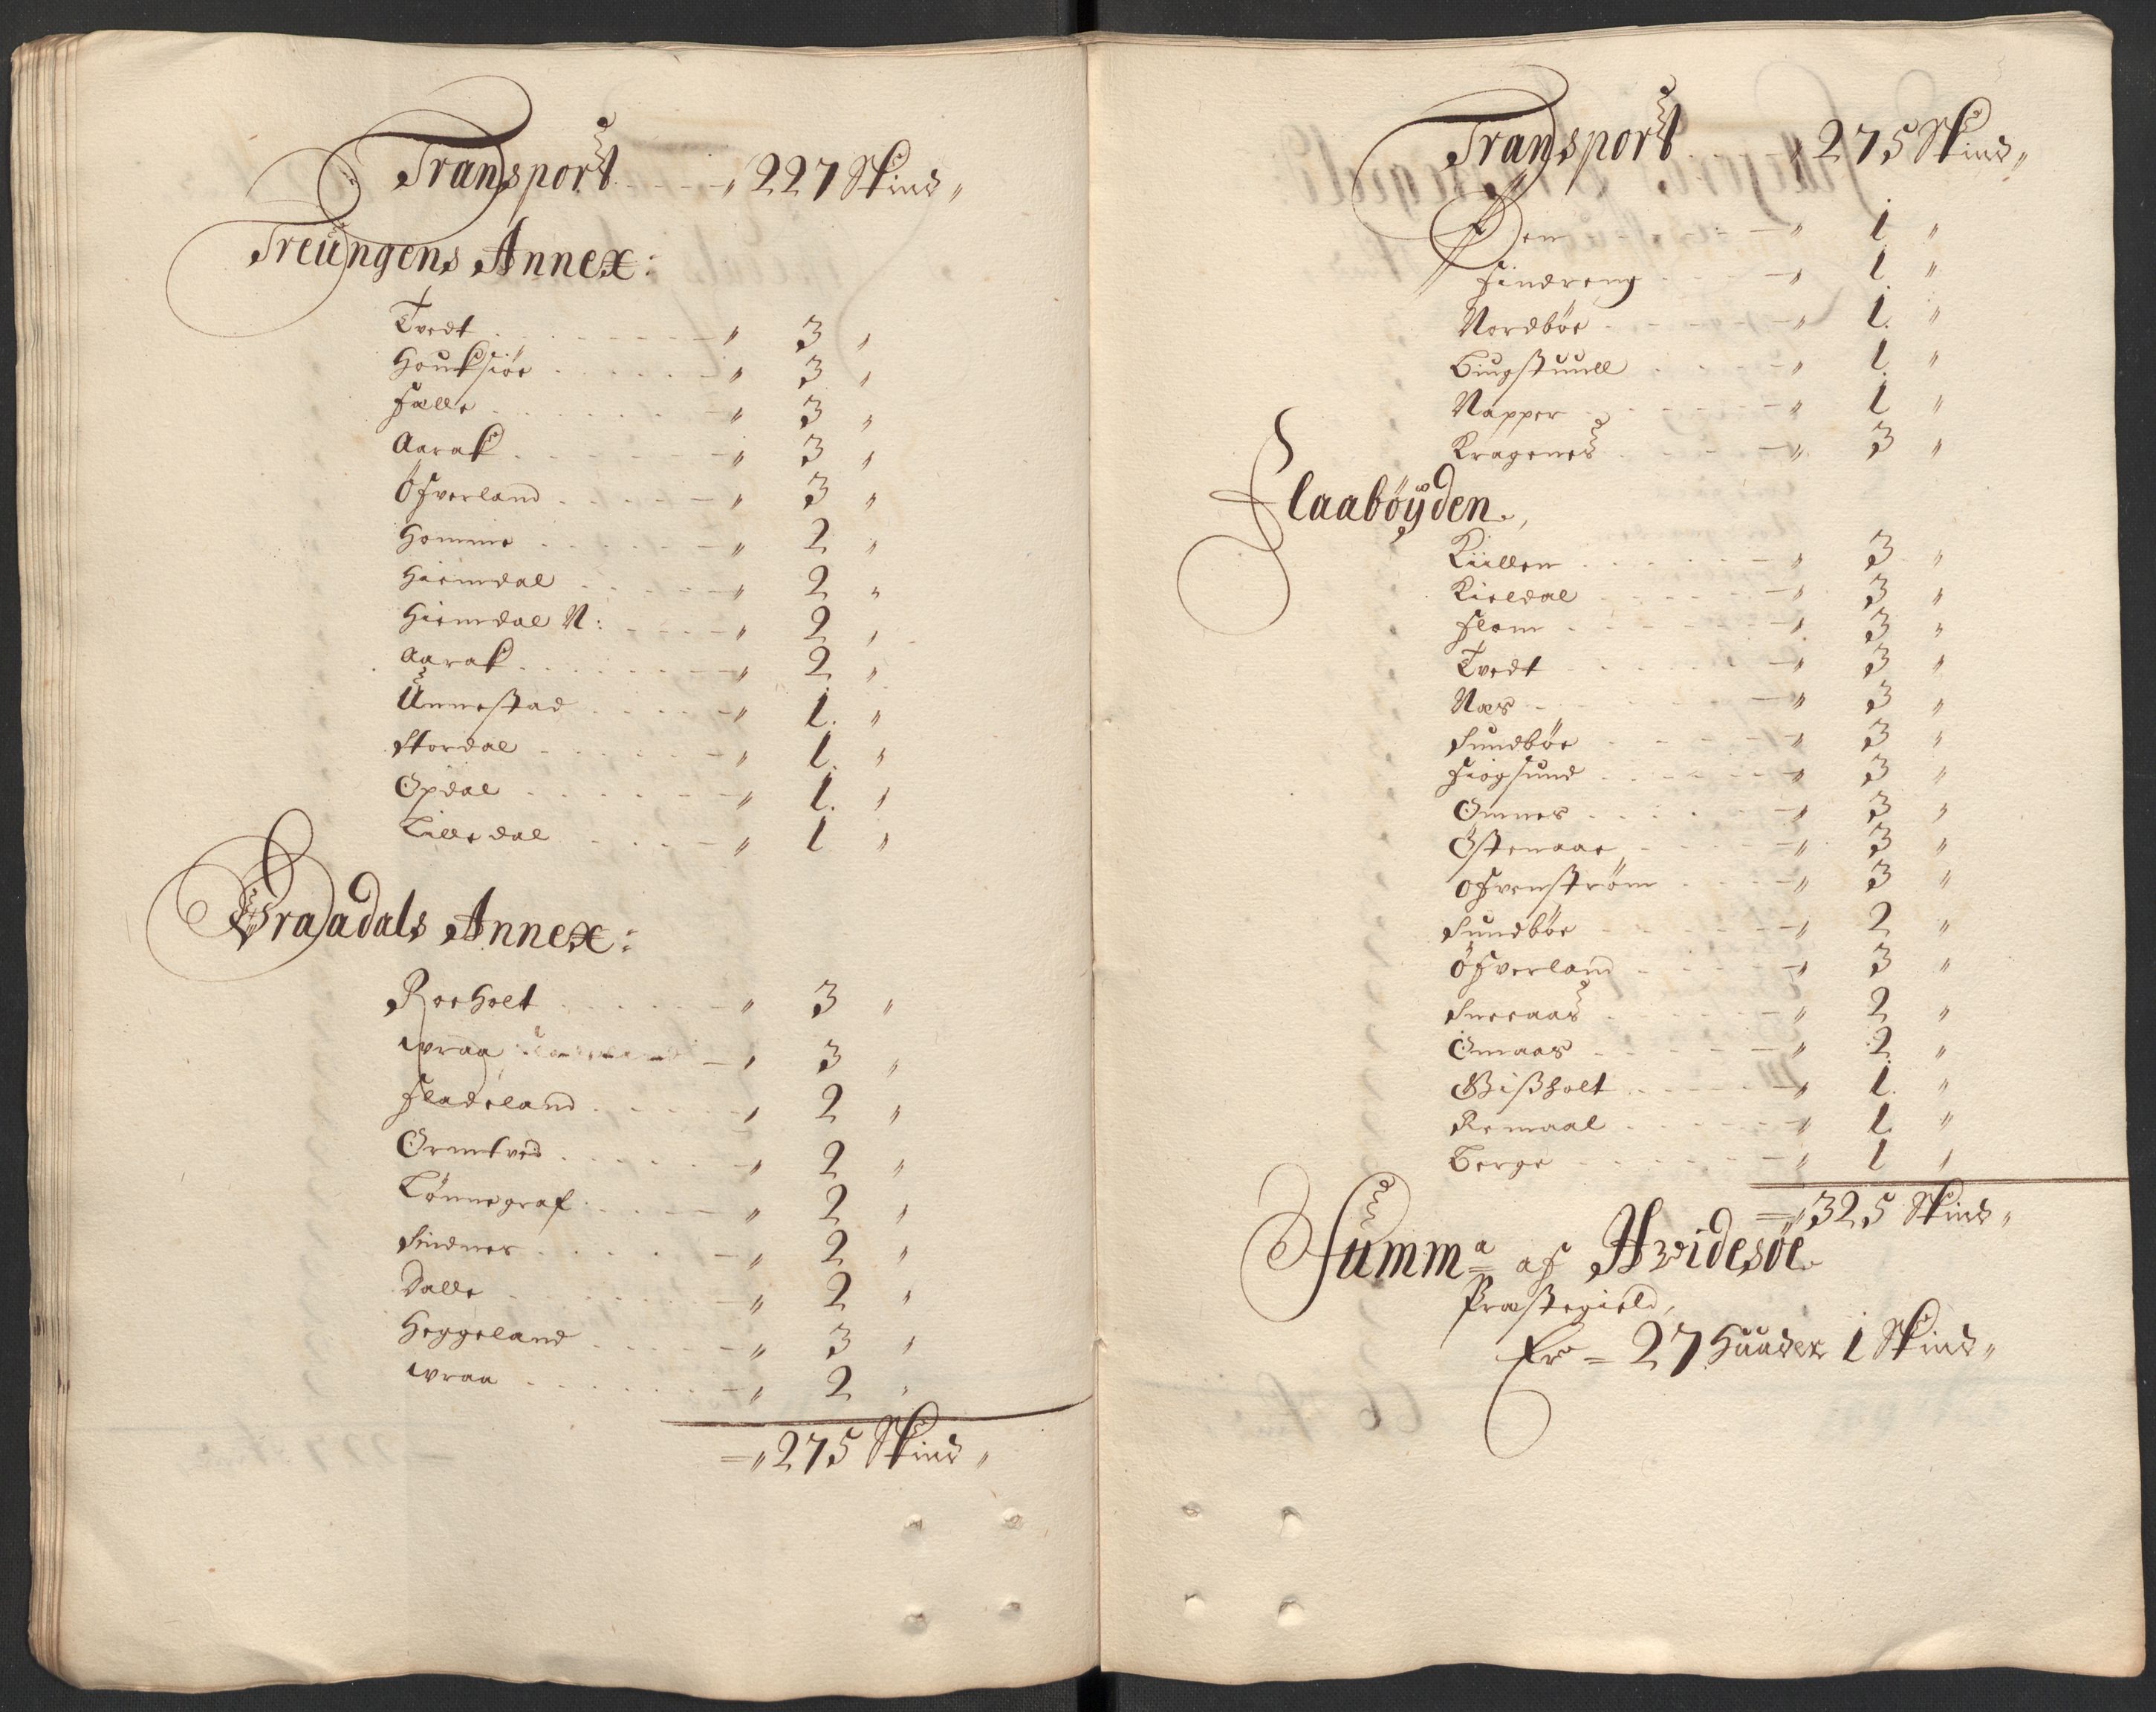 Transport - - - " 227 Skind "
Treungens Annex:
Tvedt - - - " 3 "
Houksiöe - - - " 3 "
Fälle - - - " 3 "
Aarak - - - " 3 "
Öfverland - - - " 3 "
Homme - - - " 2 "
Hiemdal - - - " 2 "
Hiemdal N: - - - " 2 "
Aarak - - - " 2 "
Unnestad - - - " 1. "
Stordal - - - " 1. "
Opdal - - - " 1. "
Lilledal - - - " 1 "
Vraadals Annex:
Roeholt - - - " 3 "
wraa - " 3 "
Fladeland - - - " 2 "
Ormtved - - - " 2 "
Lönnegraf - - - " 2 "
Sindnes - - - " 2 "
Dalle - - - " 2 "
Heggeland - - - " 3 "
wraa - - - " 2 "
= " 275 Skind "
Transport - - - " 275 Skind "
- - - " 1 "
Findreng - - - " 1 "
Nordböe - - - " 1. "
Biugstuull - - - " 1. "
Napper - - - " 1 "
Kragenes - - - " 3 "
Flaabøÿden.,
Kiillen - - - " 3 "
Kieldal - - - " 3 "
Flom - - - " 3 "
Tvedt - - - " 3 "
Næs - - - " 3 "
Sundböe - - - " 3 "
Fiogsund - - - " 3 "
Omnes - - - " 3 "
Östenaae - - - " 3 "
Ofvenström - - - " 3 "
Sundböe - - - " 2 "
Öfverland - - - " 3 "
Sneeaas - - - " 2 "
Omaas - - - " 2. "
Gißholt - - - " 1. "
Remaal - - - " 1. "
Berge - - - " 1 "
= " 325 Skind "
Summa af Hvidesöe
Præstegield,
Er = 27 Huuder 1 Skind "